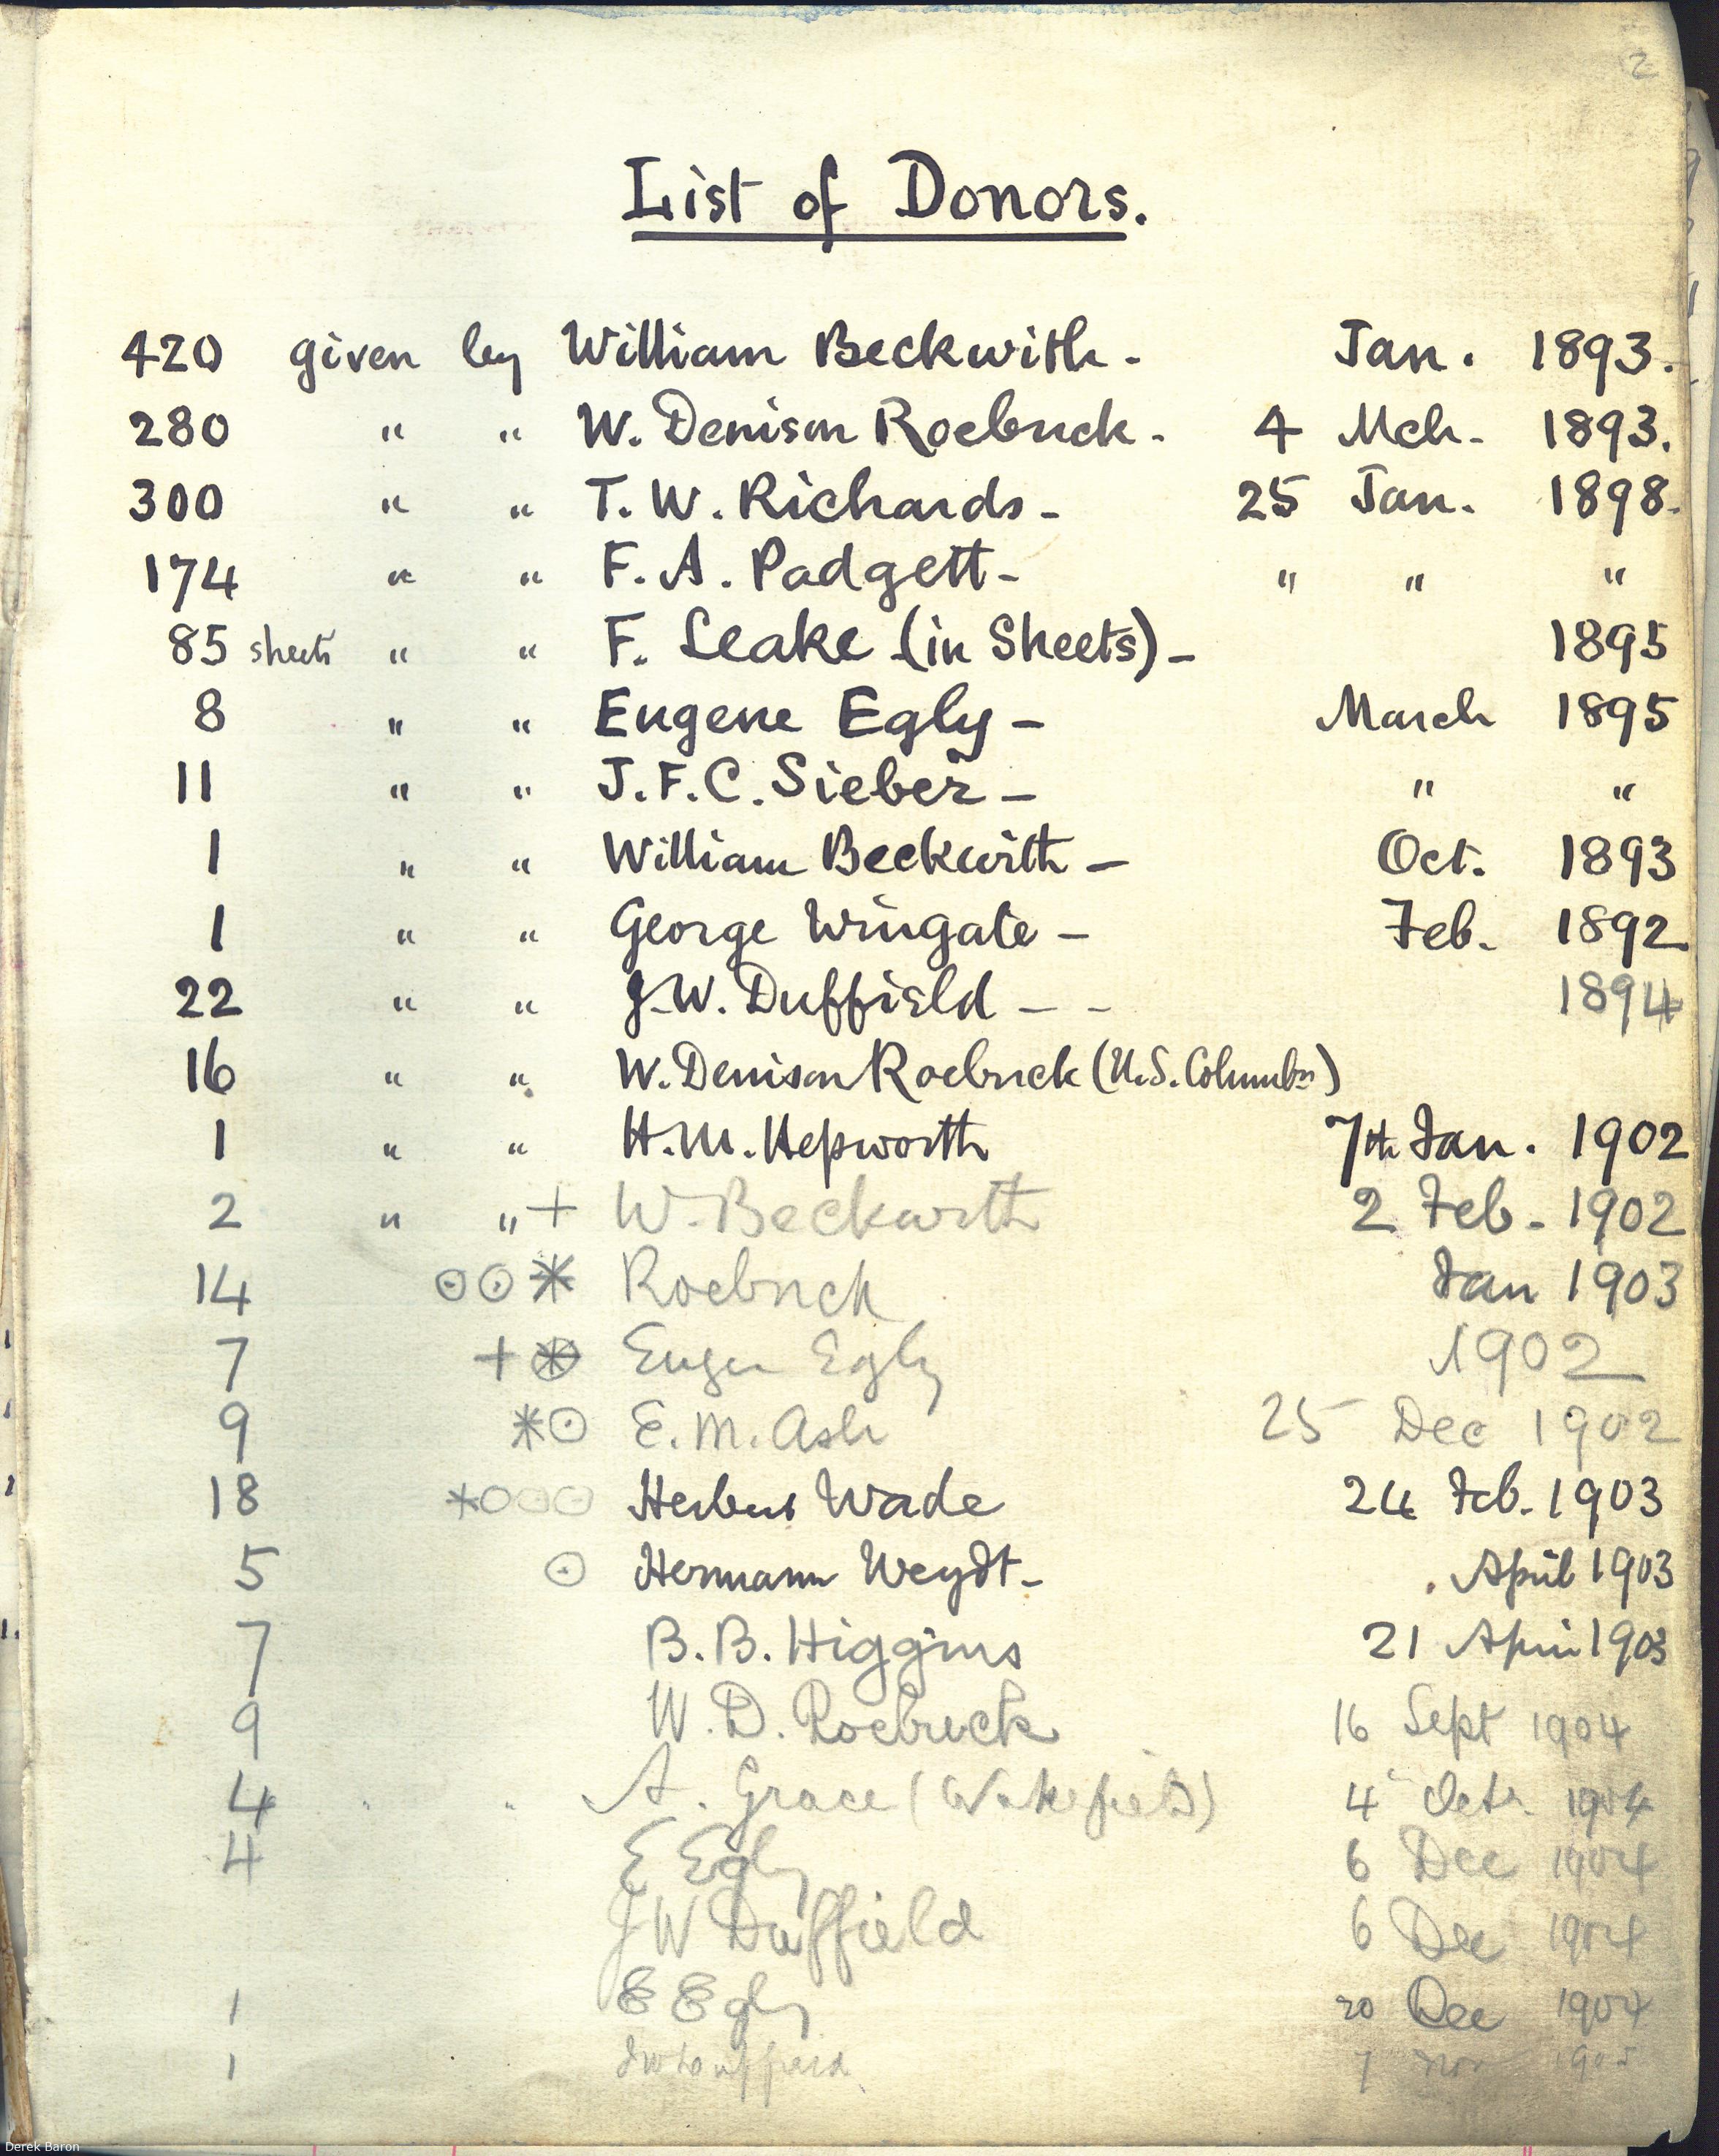 2
List of Donors.
420 given by William Beckwith - Jan. 1893.
280 " " W. Denison Roebuck - 4 Mch. 1893.
300 " " T. W. Richards - 25 Jan. 1898.
174 " " F. A. Padgett - " " "
85 sheets " " F. Leake (in Sheets) - 1895
8 " " Eugene Egly - March 1895
11 " " J. F. C. Sieber - " "
1 " " William Beckwith - Oct. 1893
1 " " George Wingate - Feb. 1892
22 " " J. W. Duffield - - 1894
16 " " W. Denison Roebuck (U.S. Columbn)
1 " " H. M. Hepworth 7th Jan. 1902
2 " " + W. Beckwith 2 Feb - 1902
14 ⊙⊙* Roebuck Jan 1903
7 + Eugen Egly 1902
9 *⊙ E. M. Ash 25 Dec 1902
18 *⊙⊙⊙ Herbert Wade 24 Feb. 1903
5 ⊙ Hermann Weydt - April 1903
7 B. B. Higgins 21 April 1903
9 W. D. Roebuck 16 Sept 1904
4 " " A. Grace (Wakefield) 4 Octr. 1904
4 E Egly 6 Dec 1904
J W Duffield 6 Dec 1904
1 E Egly 20 Dec 1904
1 J W Duffield 7 1905
Derek Baron